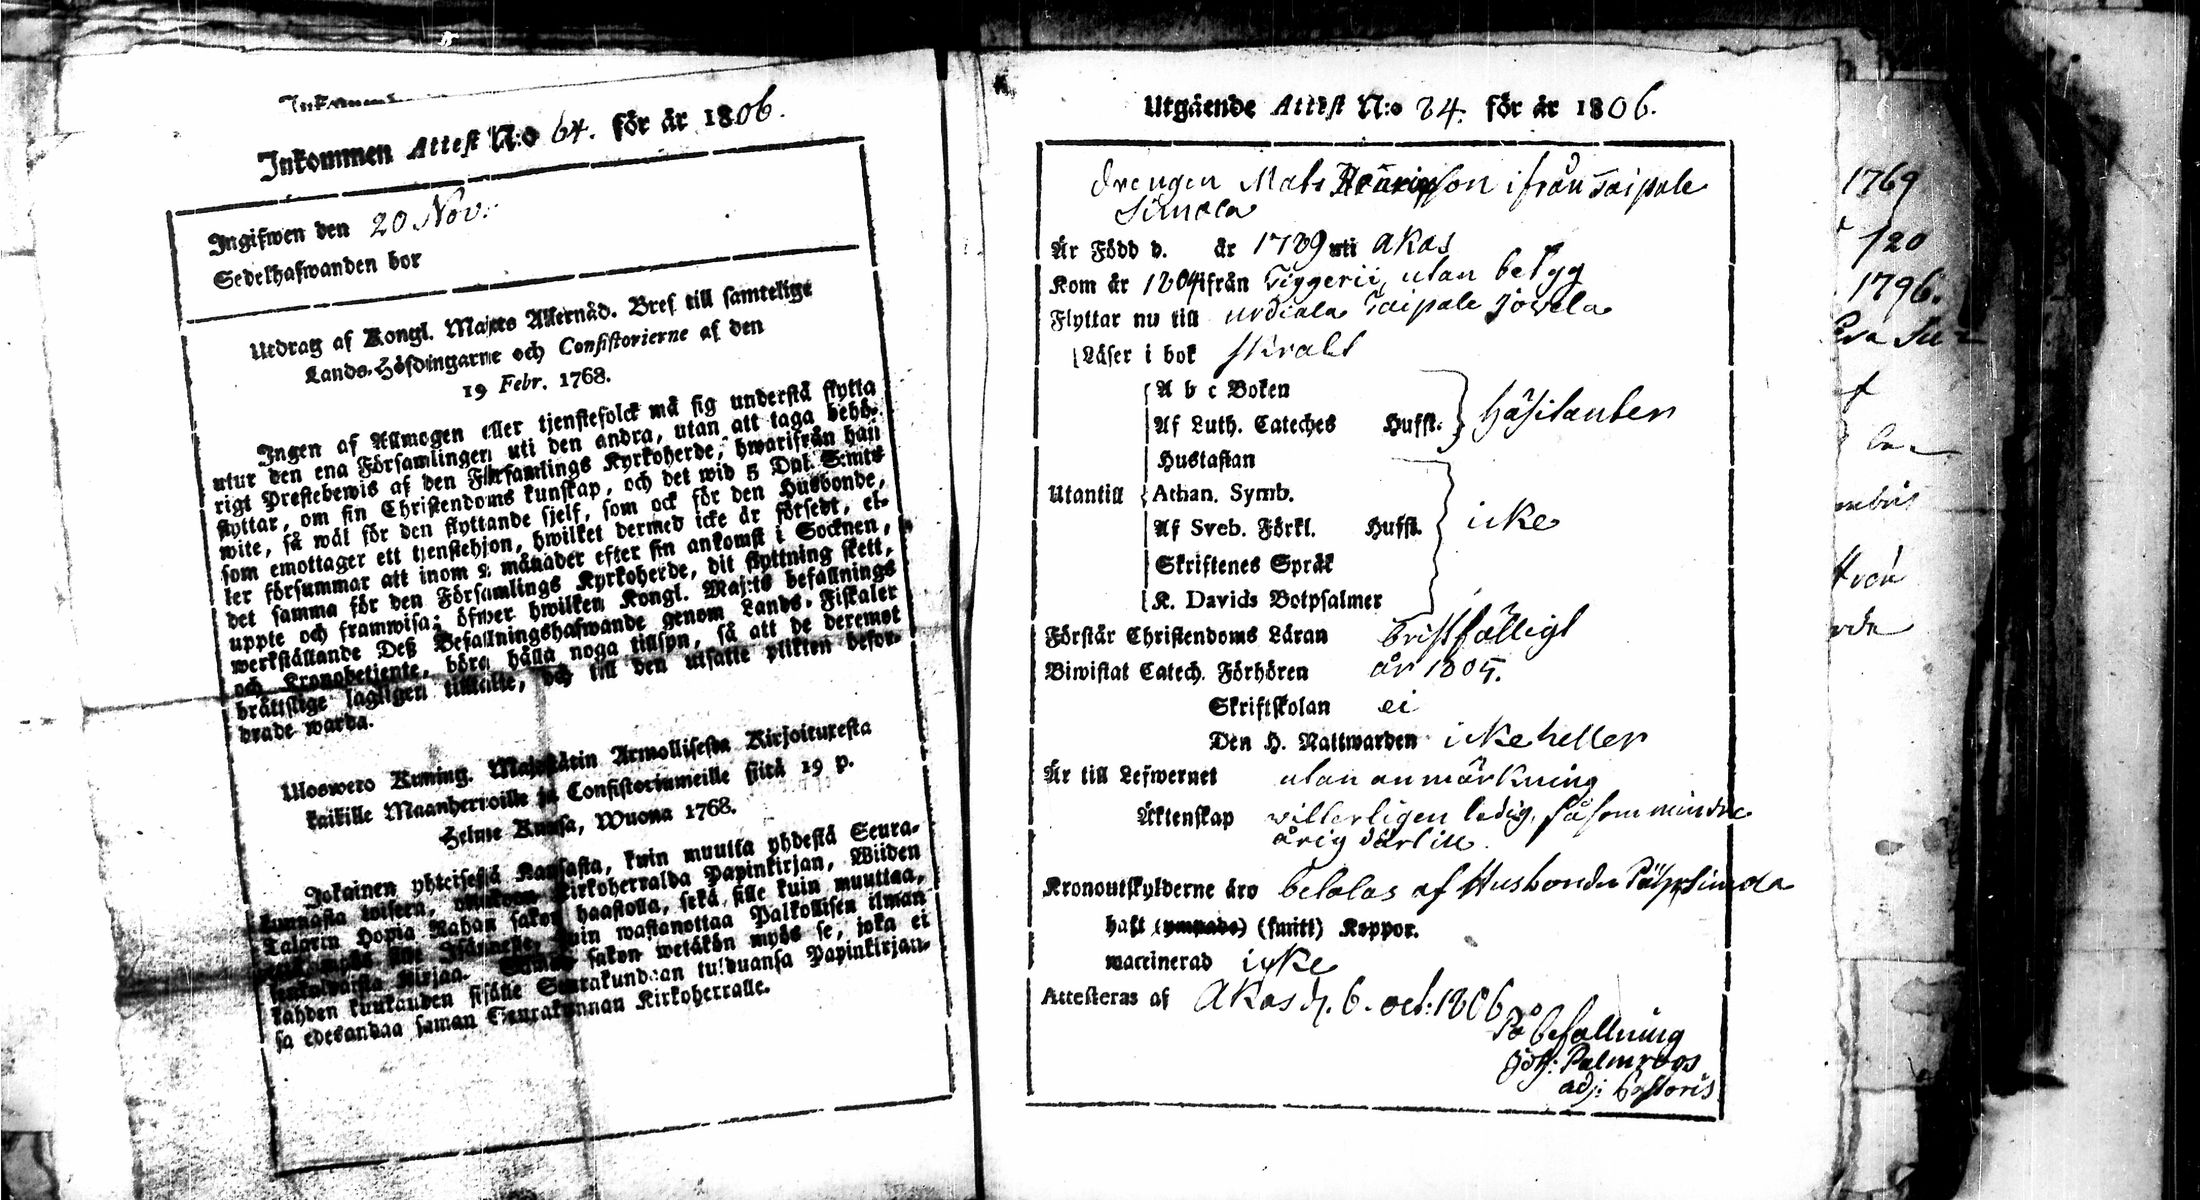 Inkommen Attest N:o 64. för år 1806.
Ingifwen den 20 Nov.
Sedelhafwanden bor
Utdrag af Kongl. Maj:ts Allernåd. Bref till samtelige
Lands-Höfdingarne och Consistorierne af den
19 Febr. 1768.
Ingen af Allmogen eller tjenstefolck må sig understå flytta
utur den ena Församlingen uti den andra, utan att taga behö-
rigt Prestebewis af den Församlings Kyrkoherde, hwarifrån han
flyttar, om sin Christendoms kunskap, och det wid 5 Dal. S:mts
wite, så wäl för den flyttande sjelf, som ock för den Husbonde,
som emottager ett tjenstehjon, hwilket dermed icke är försedt, el-
ler försummar att inom 2 månader efter sin ankomst i Socknen,
det samma för den Församlings Kyrkoherde, dit flyttning skett,
uppte och framwisa; öfwer hwilken Kongl. Maj:ts befallnings
werkställande Deß Befallningshafwande genom Lands-Fiskaler
och Kronobetjente, böra hålla noga tillsyn, så att de deremot
bråttslige lagligen tilltalte, och till den utsatte plikten befor-
drade warda.
Uloswero Kuning. Majestätin Armollisesta Kirjoituxesta
kaikille Maanherroille ja Consistoriumeille siitä 19 p.
Helme Kuusa, Wuona 1768.
Jokainen yhteisestä Kansasta, kuin muutta yhdestä Seura-
kunnasta toiseen, Kirkoherralda Papinkirjan, Wiiden
Talarin Hopia Rahan sakon haastolla, sekä sille kuin muuttaa,
kuin wastanottaa Palkollisen ilman
Kirjaa. sakon wetäkön myös se, joka ei
kahden kuukauden sisälle Seurakundaan tulduansa Papinkirjan-
sa edesandaa saman Seurakunnan Kirkoherralle.
Utgående Attest N:o 84. för år 1806.
Drengen Mats Henricsson ifrån Taipale
Simola
Är Född d. år 1789 uti Akas
Kom år 1804 ifrån Tiggerii, utan betyg
Flyttar nu till Urdiala Taipale Jowela
Läser i bok swalt
A b c Boken
Af Luth. Cateches Hufst. häsitanter
Hustaflan
Utantill Athan. Symb.
Af Sveb. Förkl. Hufst. icke
Skriftenes Språk
K. Davids Botpsalmer
Förstår Christendoms Läran bristfälligt
Biwistat Catech. Förhören år 1805.
Skriftskolan ei
Den H. Nattwarden icke heller
Är till Lefwernet utan anmärkning
Äktenskap witterligen ledig, såsom mindre
årig därtill.
Kronoutskylderne äro betalas af Husbonden Simola
haft (ympade) (smitt) Koppor.
waccinerad icke
Attesteras af Akas d. 6. oct: 1806
På befallning
Joh: Palmroos
adj: Pastoris
1769
120
1796.